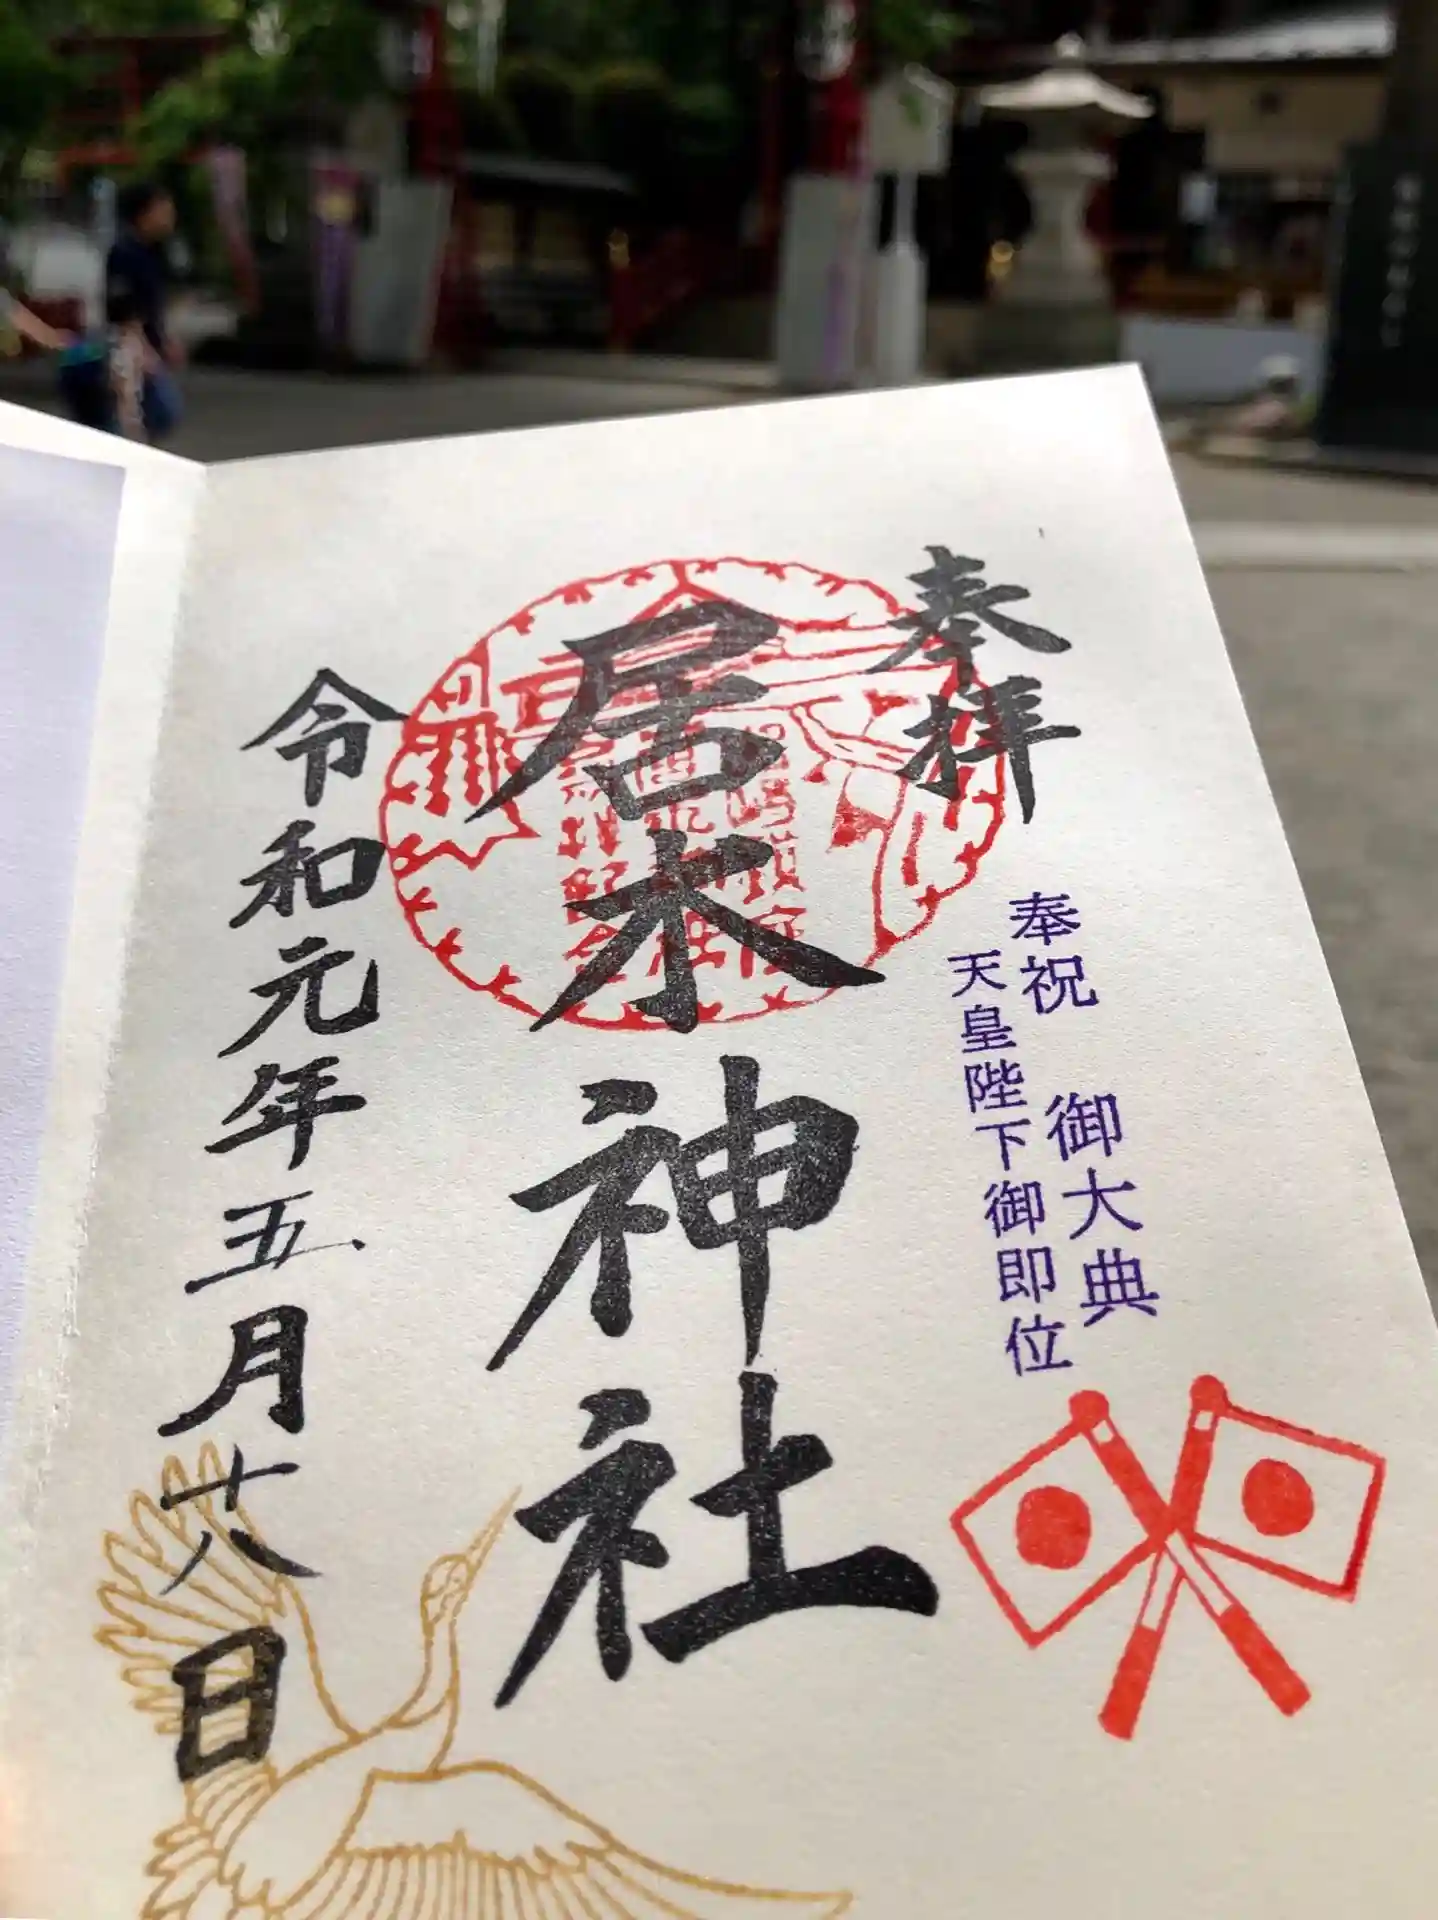 奉拝
奉祝　御大典
天皇陛下御即位
居木神社
令和元年五月十八日